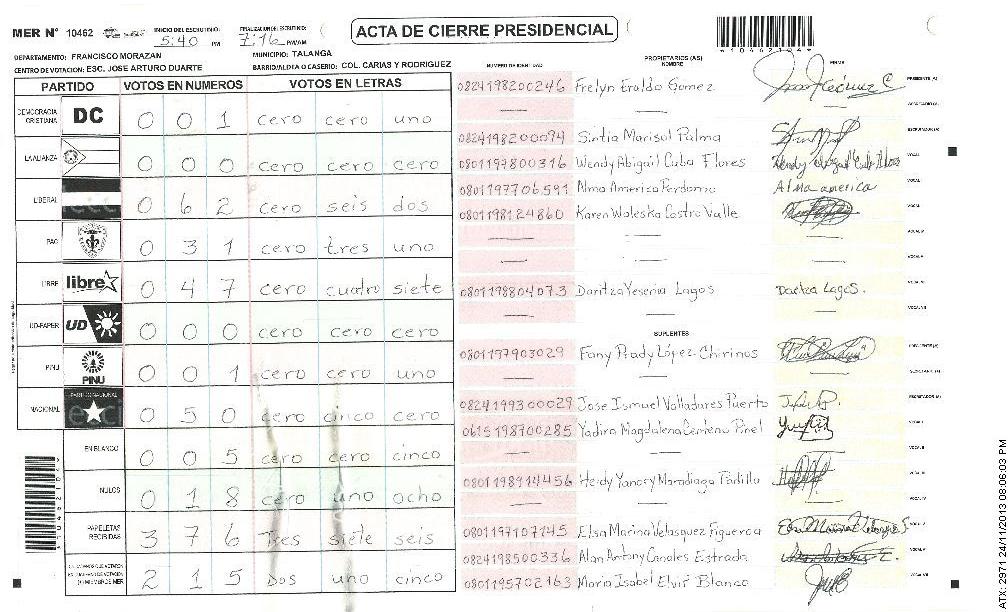 MER Nº 10462 INICIO DEL ESCRUTINIO: 5:40 PM FINALIZACION DEL ESCRUTINIO: 7:16 PM/AM
ACTA DE CIERRE PRESIDENCIAL
10462184
DEPARTAMENTO: FRANCISCO MORAZAN MUNICIPIO: TALANGA
CENTRO DE VOTACION: ESC. JOSE ARTURO DUARTE BARRIO/ALDEA O CASERIO: COL. CARIAS Y RODRIGUEZ
PARTIDO VOTOS EN NUMEROS VOTOS EN LETRAS
DEMOCRACIA CRISTIANA DC 0 0 1 cero cero uno
LA ALIANZA 0 0 0 cero cero cero
LIBERAL 0 6 2 cero seis dos
PAC 0 3 1 cero tres uno
LIBRE libre 0 4 7 cero cuatro siete
UD-FAPER UD 0 0 0 cero cero cero
PINU PINU 0 0 1 cero cero uno
NACIONAL PARTIDO NACIONAL 0 5 0 cero cinco cero
EN BLANCO 0 0 5 cero cero cinco
NULOS 0 1 8 cero uno ocho
PAPELETAS RECIBIDAS 3 7 6 Tres siete seis
2 1 5 Dos uno cinco
NUMERO DE IDENTIDAD PROPIETARIOS (AS) NOMBRE FIRMA
0824198200246 Frelyn Eraldo Gomez PRESIDENTE (A)
SECRETARIO (A)
0824198200094 Sintia Marisol Palma ESCRUTADOR (A)
0801197800316 Wendy Abigail Cuba Flores VOCAL
0801197706591 Alma America Perdomo Alma america VOCAL
0801198124860 Karen Waleska Castro Valle VOCAL
0801198804073 Daritza Yesenia Lagos Daritza Lagos.
SUPLENTES
0801197903029 Fany Prady López Chirinos PRESIDENTE (A)
SECRETARIO (A)
0824199300029 Jose Ismael Valladares Puerto ESCRUTADOR (A)
0615198700285 Yadira Magdalena Centeno Pinel
0801198914456 Heidy Yanory Maradiaga Padilla
0801197107145 Elsa Marina Velasquez Figueroa
0824198500336 Alan Antony Canales Estrada
0801195702163 Maria Isabel Elvir Blanco
ATX: 2971 24/11/2013 08:06:03 PM